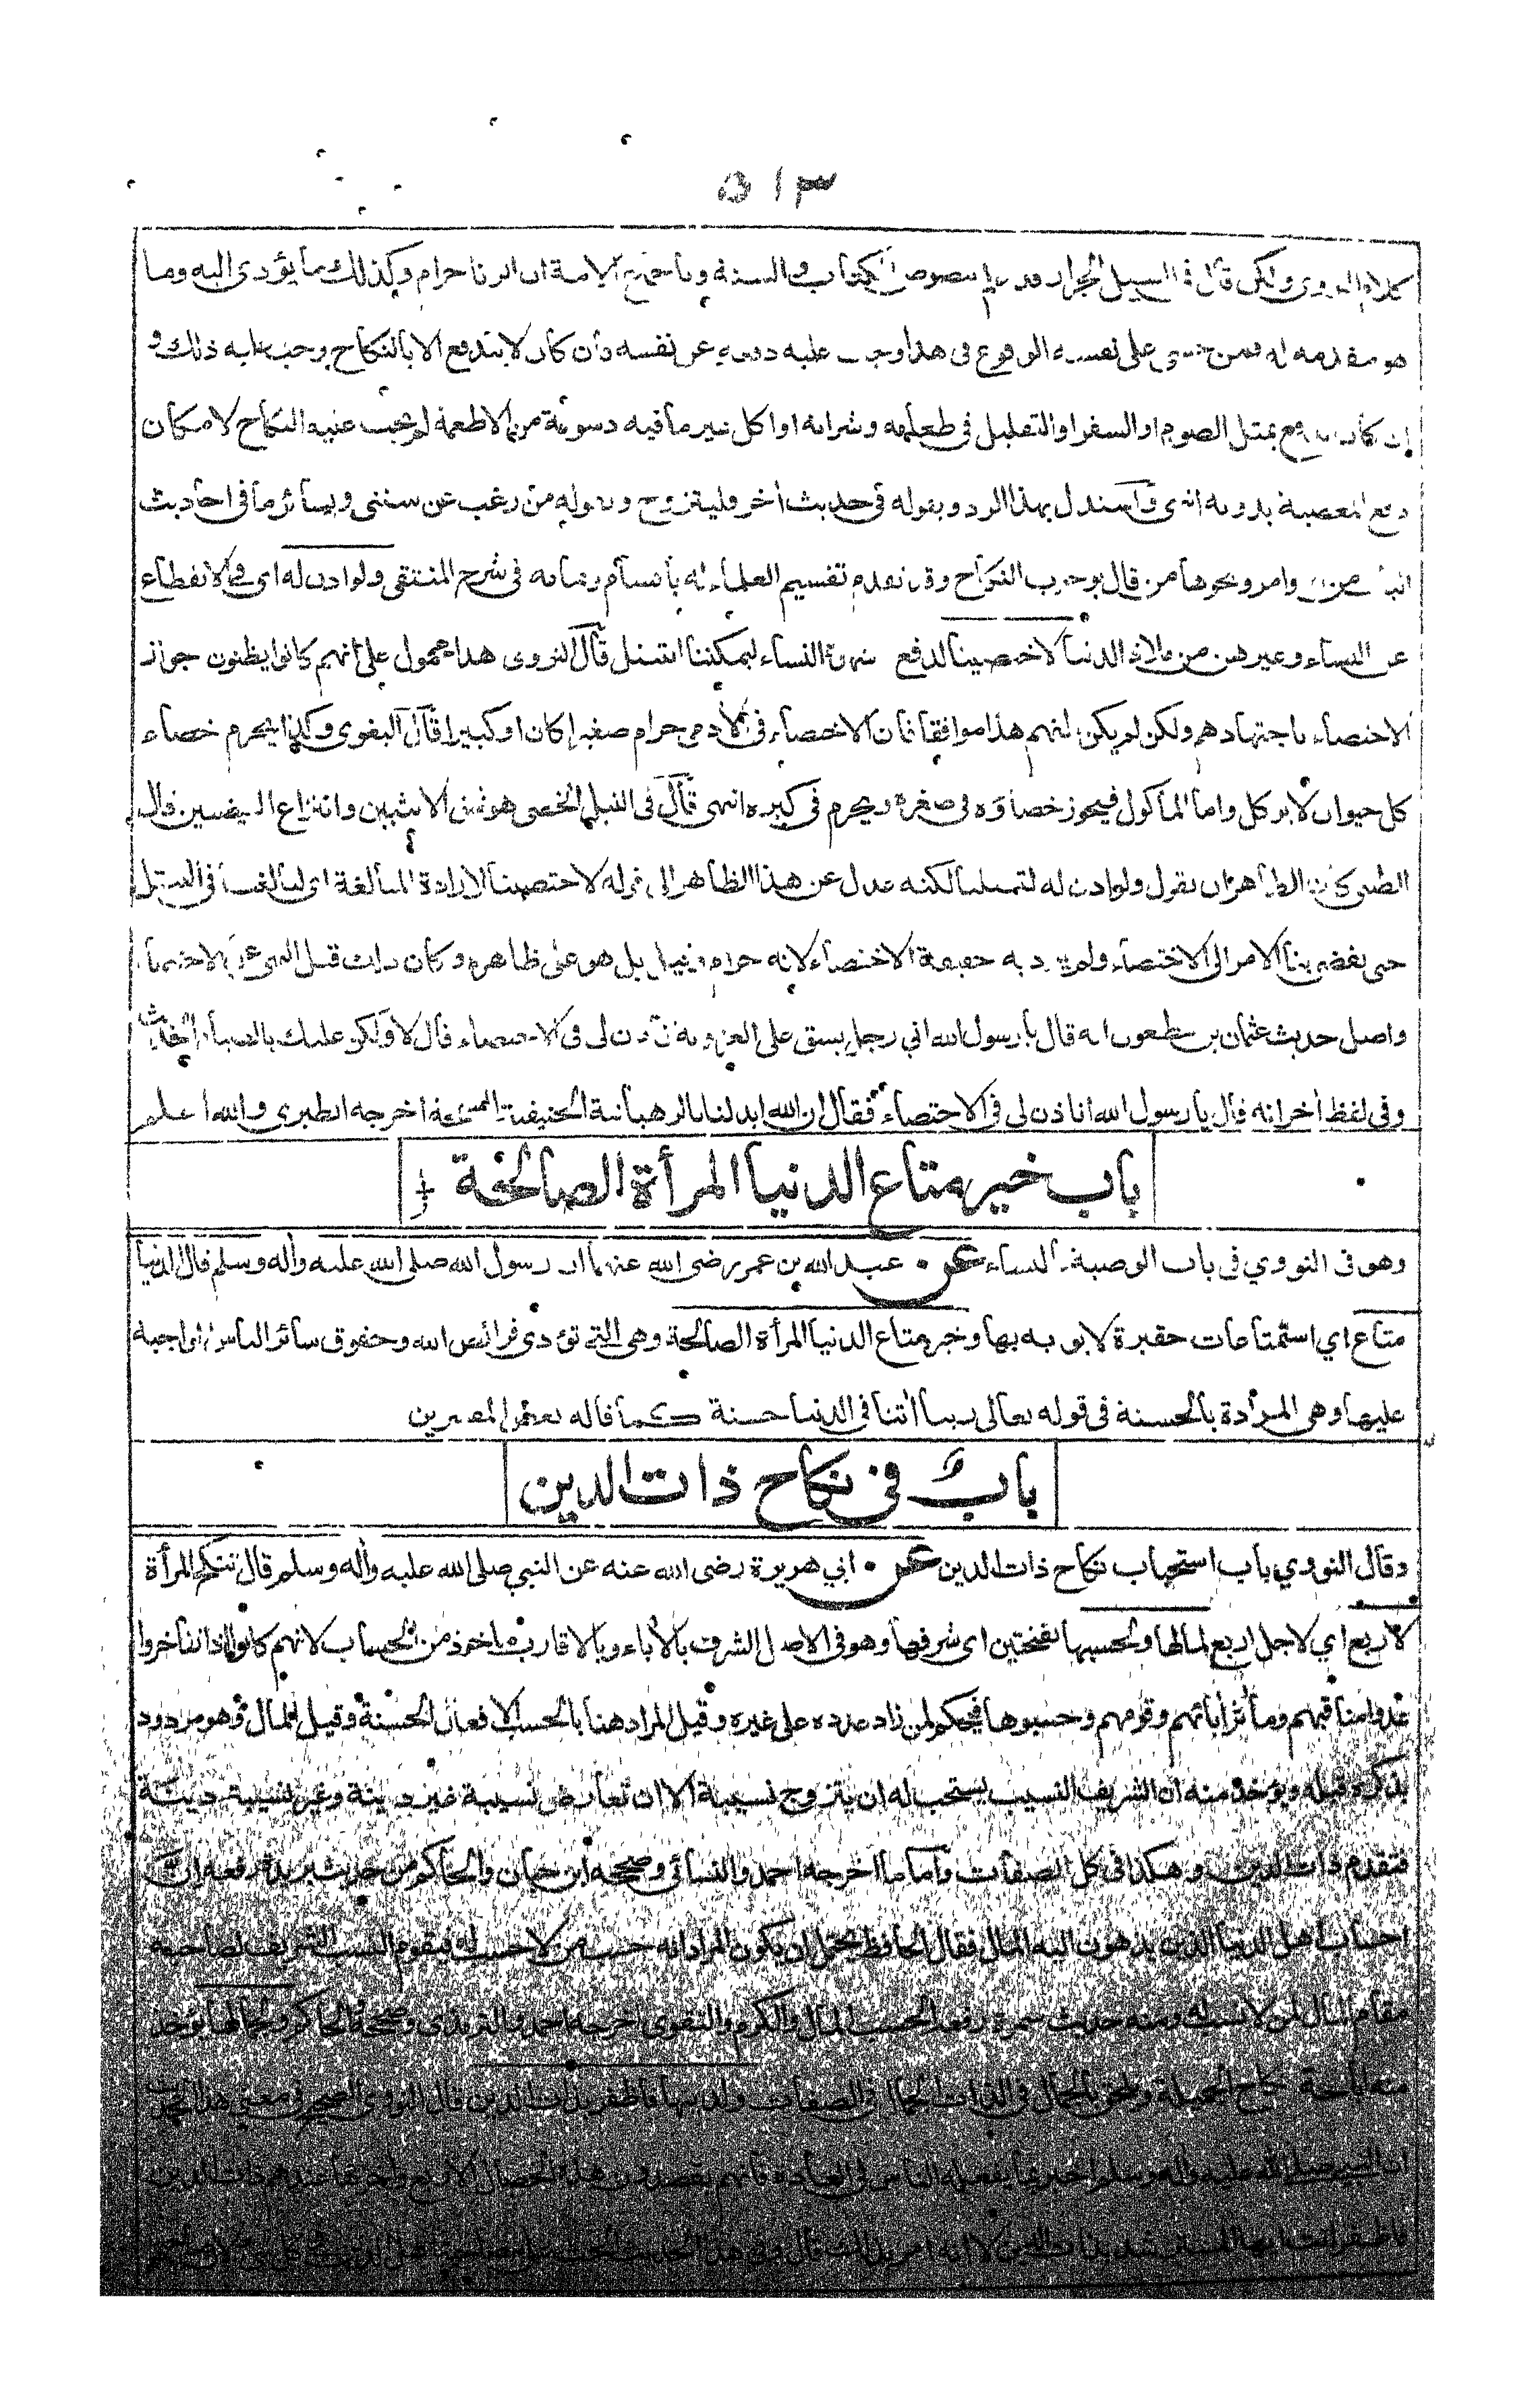 ٥١٣
كلام النووي ولكن قال في السيل الجرار قد علم بنصوص الكتاب والسنة وباجماع الامة ان الزنا حرام وكذلك ما يؤدي اليه وما
هو مقدمة له فمن خشي على نفسه الوقوع في هذا وجب عليه دفعه عن نفسه فان كان لا يندفع الا بالنكاح وجب عليه ذلك و
ان كان يندفع بمثل الصوم او السفر او التقليل في طعامه وشرابه او اكل غير ما فيه دسومة من الاطعمة لم يجب عليه النكاح لامكان
دفع المعصية بدونه انتهى واستدل بهذا الرد وبقوله في حديث اخر فليتزوج وبقوله من رغب عن سنتي وبسائر ما في احاديث
الباب من وامر ونحوها من قال بوجوب النكاح وقد تقدم تقسيم العلماء له باقسام وتمامه في شرح المنتقى ولو اذن له اي في الانقطاع
عن النساء وغيرهن من ملاذ الدنيا لاختصينا لدفع شهوة النساء ليمكننا التبتل قال النووي هذا محمول على انهم كانوا يظنون جواز
الاختصاء باجتهادهم ولكن لم يكن ظنهم هذا موافقا فان الاختصاء في الآدمي حرام صغيرا كان او كبيرا قال البغوي وكذا يحرم خصاء
كل حيوان لا يوكل واما المأكول فيجوز خصاؤه في صغره ويحرم في كبره انتهى قال في النيل الخصي هو شق الانثيين وانتزاع البيضتين قال
الطيبي كان الظاهر ان يقول ولو اذن له لتبتلنا لكنه عدل عن هذا الظاهر الى قوله لاختصينا لارادة المبالغة اي لبالغنا في التبتل
حتى يفضي بنا الامر الى الاختصاء ولم يرد به حقيقة الاختصاء لانه حرام وقيل بل هو على ظاهره وكان ذلك قبل النهي عن الاختصاء
واصل حديث عثمان بن مظعون انه قال يا رسول الله اني رجل يشق على العزوبة فاذن لي في الاختصاء قال لا ولكن عليك بالصيام الحديث
وفي لفظ اخر انه قال يا رسول الله اتاذن لي في الاختصاء فقال ان الله ابدلنا بالرهبانية الحنيفية السمحة اخرجه الطبري والله اعلم
باب خير متاع الدنيا المرأة الصالحة
وهو في النووي في باب الوصية بالنساء عن عبد الله بن عمر رضي الله عنهما ان رسول الله صلى الله عليه وآله وسلم قال الدنيا
متاع اي استمتاعات حقيرة لا يوبه بها وخير متاع الدنيا المرأة الصالحة وهي التي تؤدي فرائض الله وحقوق سائر الناس الواجبة
عليها وهي المرادة بالحسنة في قوله تعالى ربنا آتنا في الدنيا حسنة كما قاله بعض المفسرين
باب في نكاح ذات الدين
وقال النووي باب استحباب نكاح ذات الدين عن ابي هريرة رضي الله عنه عن النبي صلى الله عليه وآله وسلم قال تنكح المرأة
لاربع اي لاجل اربع لمالها ولحسبها بفتحتين اي شرفها وهو في الاصل الشرف بالآباء وبالاقارب ماخوذ من الحساب لانهم كانوا اذا تفاخروا
عدوا مناقبهم ومآثر آبائهم وقومهم وحسبوها فيحكم لمن زاد عدده على غيره وقيل المراد هنا بالحسب الافعال الحسنة وقيل المال وهو مردود
بذكره قبله ويوخذ منه ان الشريف النسيب يستحب له ان يتزوج نسيبة الا ان تعارض نسيبة غير دينة وغير نسيبة دينة
فتقدم ذات الدين وهكذا في كل الصفات واما ما اخرجه احمد والنسائي وصححه ابن حبان والحاكم من حديث بريدة رفعه ان
احساب اهل الدنيا الذين يذهبون اليه المال فقال الحافظ يحتمل ان يكون المراد انه حسب من لا حسب له فيقوم النسب الشريف لصاحبه
مقام المال لمن لا نسب له ومنه حديث سمرة رفعه الحسب المال والكرم والتقوى اخرجه احمد والترمذي وصححه والحاكم ولجمالها يوخذ
منه اباحة نكاح الجميلة ويلحق بالجمال في الذات الجمال في الصفات ولدينها فاظفر بذات الدين قال النووي الصحيح في معنى هذا الحديث
ان النبي صلى الله عليه وآله وسلم اخبر بما يفعله الناس في العادة فانهم يقصدون هذه الخصال الاربع وآخرها عندهم ذات الدين
فاظفر انت ايها المسترشد بذات الدين لا انه امر بذلك قال وفي هذا الحديث الحث على مصاحبة اهل الدين في كل شيء